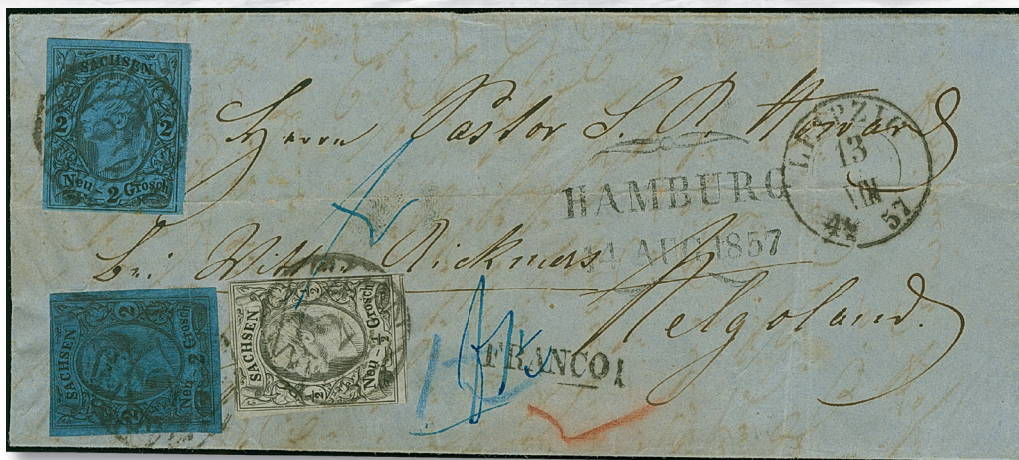 SACHSEN
2 2
Neu 2 Grosch
Herrn Pastor S. P. Howard
LEIPZIG
13
VIII
57
HAMBURG
14 AUG 1857
bei Rickmers
Helgoland.
SACHSEN
2
Neu 2 Grosch
SACHSEN
½
Neu - ½ Grosch
½
FRANCO